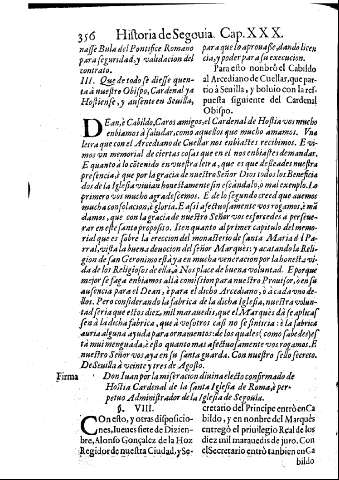 356 Historia de Segouia. Cap. XXX.
nasse Bula del Pontifice Romano
para seguridad, y validacion del
contrato.
III. Que de todo se diesse quen-
ta à nuestro Obispo, Cardenal ya
Hostiense, y ausente en Sevilla,
para que lo aprouasse, dando licen-
cia, y poder para su execucion.
Para esto nombrò el Cabildo
al Arcediano de Cuellar, que par-
tio à Sevilla, y boluio con la res-
puesta siguiente del Cardenal
Obispo.
DEan, è Cabildo, Caros amigos, el Cardenal de Hostia vos mucho
enbiamos à saludar, como aquellos que mucho amamos. Vna
letra que con el Arcediano de Cuellar nos enbiastes recibimos. E vi-
mos vn memorial de ciertas cosas que en el nos enbiastes demandar.
E quanto à lo côtenido en vuestra letra, que es que despues de nuestra
presencia, è que por la gracia de nuestro Señor Dios todos los Beneficia
dos de la Iglesia viuian honestamente sin escàndalo, o mal exemplo. Lo
primero vos mucho agradescemos. E de lo segundo creed que auemos
mucha consolacion, è gloria. E assi afectuosamente vos rogamos, è mã
damos, que con la gracia de nuestro Señor vos esforcedes a perseue-
rar en este santo proposito. Iten quanto al primer capitulo del memo-
rial que es sobre la ereccion del monasterio de santa Maria del Par-
ral, vista la buena deuocion del Señor Marquès: y acatando la Reli-
gion de san Geronimo està ya en mucha veneracion por la honesta vi-
da de los Religiosos de ella, à Nos place de buena voluntad. E porque
mejor se faga enbiamos allà comission para nuestro Prouisor, o en su
ausencia para el Dean, è para el dicho Arcediano, ò a cada vno de-
llos. Pero considerando la fabrica de dicha Iglesia, nuestra volun-
tad seria que estos diez mil marauedis, que el Marquès dà se aplicas
sen à la dicha fabrica, que à vosotros casi no se sintiria: è la fabrica
auria alguna ayuda para ornamentos: de los quales, como sabedes es-
tà mui menguada, è esto quanto mas afectuosamente vos rogamos. E
nuestro Señor vos aya en su santa guarda. Con nuestro sello secreto.
De Sevilla à veinte y tres de Agosto.
Firma Don Iuan por la miseracion diuina electo confirmado de
Hostia Cardinal de la santa Iglesia de Roma, è per-
petuo Administrador de la Iglesia de Segouia.
§. VIII.
COn esto, y otras disposicio-
nes, Iueues siete de Dizien-
bre, Alonso Gonçalez de la Hoz
Regidor de nuestra Ciudad, y Se-
cretario del Principe entrò en Ca
bildo, y en nonbre del Marquès
entregò el priuilegio Real de los
diez mil marauedis de juro. Con
el Secretario entrò tanbien en Ca
bildo